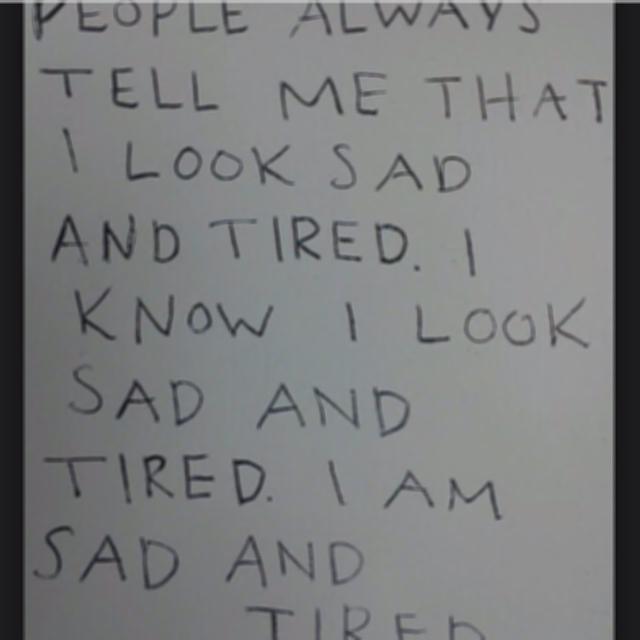 PEOPLE ALWAYS
TELL ME THAT
I LOOK SAD
AND TIRED. I
KNOW I LOOK
SAD AND
TIRED. I AM
SAD AND
TIRED